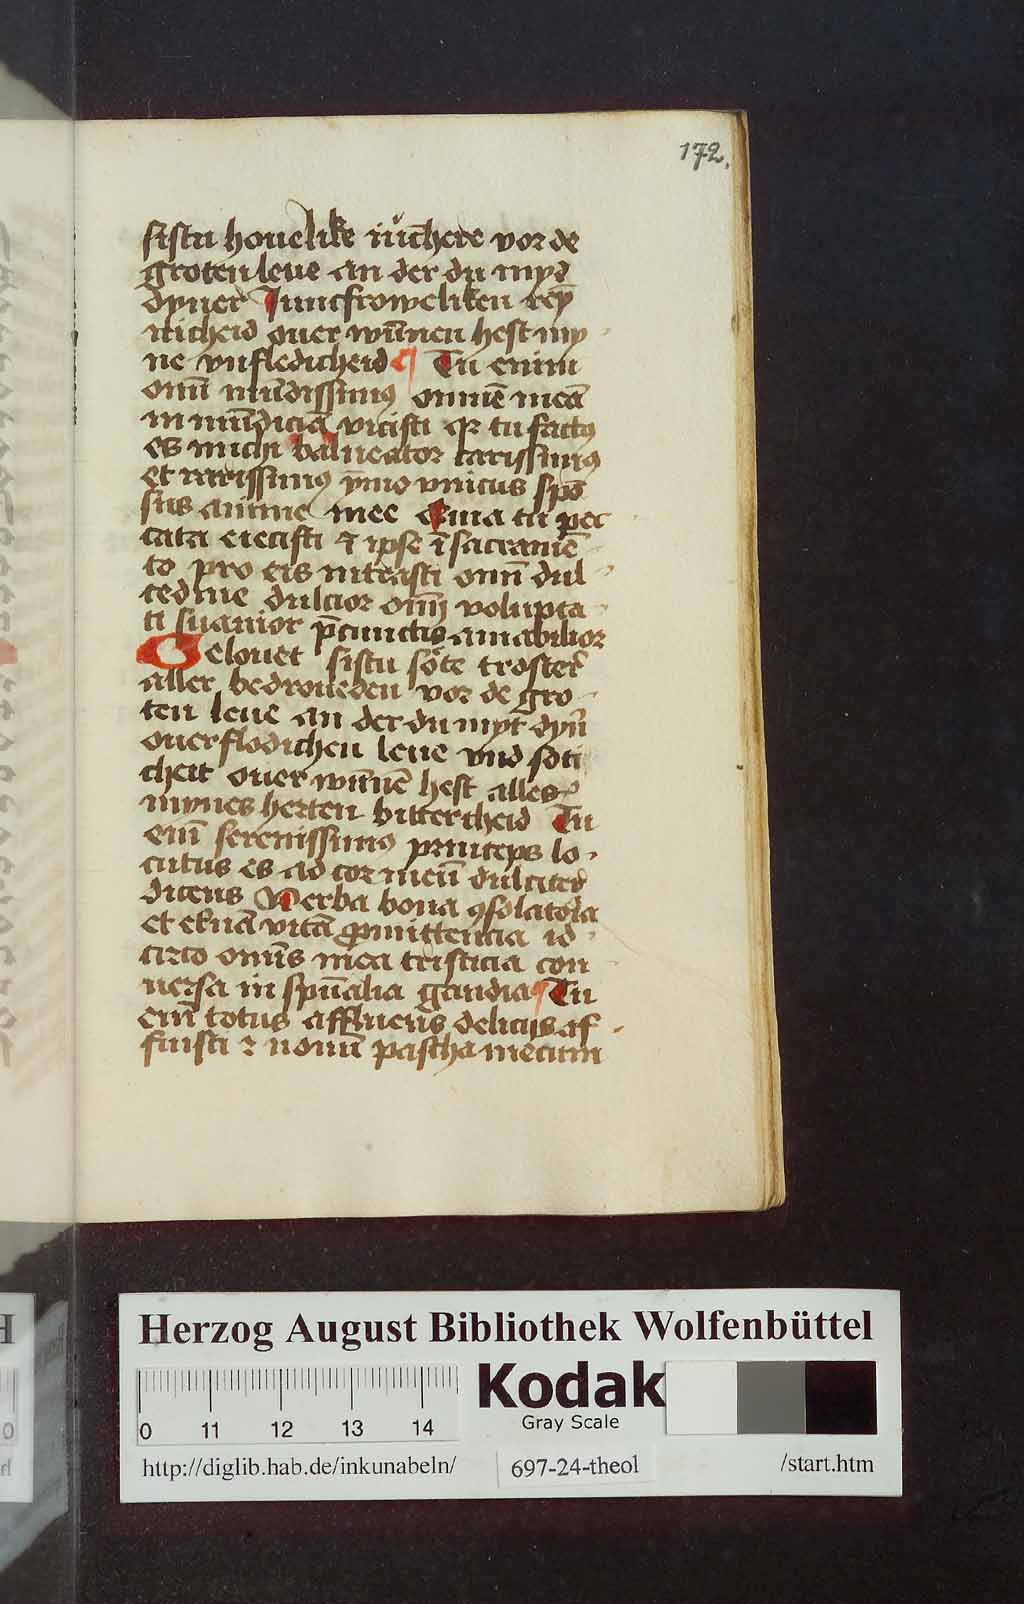 172.
sistu houelike iu̅chere vor de
groten leue an der du myd
dyner Juncfroweliken rey̅
nicheid ouer wu̅nen hest my
ne vnfledicheid ¶ Tu enim
om̅ mu̅dissimꝰ omne̅ mea̅
in mu̅dicia̅ vicisti qr tu factꝰ
es michi balneator carissimꝰ
et rarissimꝰ ymo vnicus spo̅
sus anime mee Omnia tu pec
cata eiecisti ⁊ ipse i̅ sacrame̅
to pro eis intrasti om̅ dul
cedine dulcior om̅j volupta
ti suauior p̅ cunctis amabilior
Gelouet sistu sote troster
aller bedroueden vor de gro
ten leue an der du myt dyn̅
ouerflodichen leue vnd soti
cheit ouer wu̅ne̅ hest alles
mynes herten bitterheid Tu
em̅ serenissimꝰ princeps lo
cutus es ad cor meu̅ dulciter
dicens Verba bona ꝯsolatoria
et et̅na̅ vita̅ ꝓmittencia id
circo om̅is mea tristicia con
uersa in spu̅alia gaudia ¶ Tu
em̅ totus affluens delicijs af
fuisti ⁊ nouu̅ pascha mecum
Herzog August Bibliothek Wolfenbüttel
Kodak
Gray Scale
0 11 12 13 14
http://diglib.hab.de/inkunabeln/ 697-24-theol /start.htm